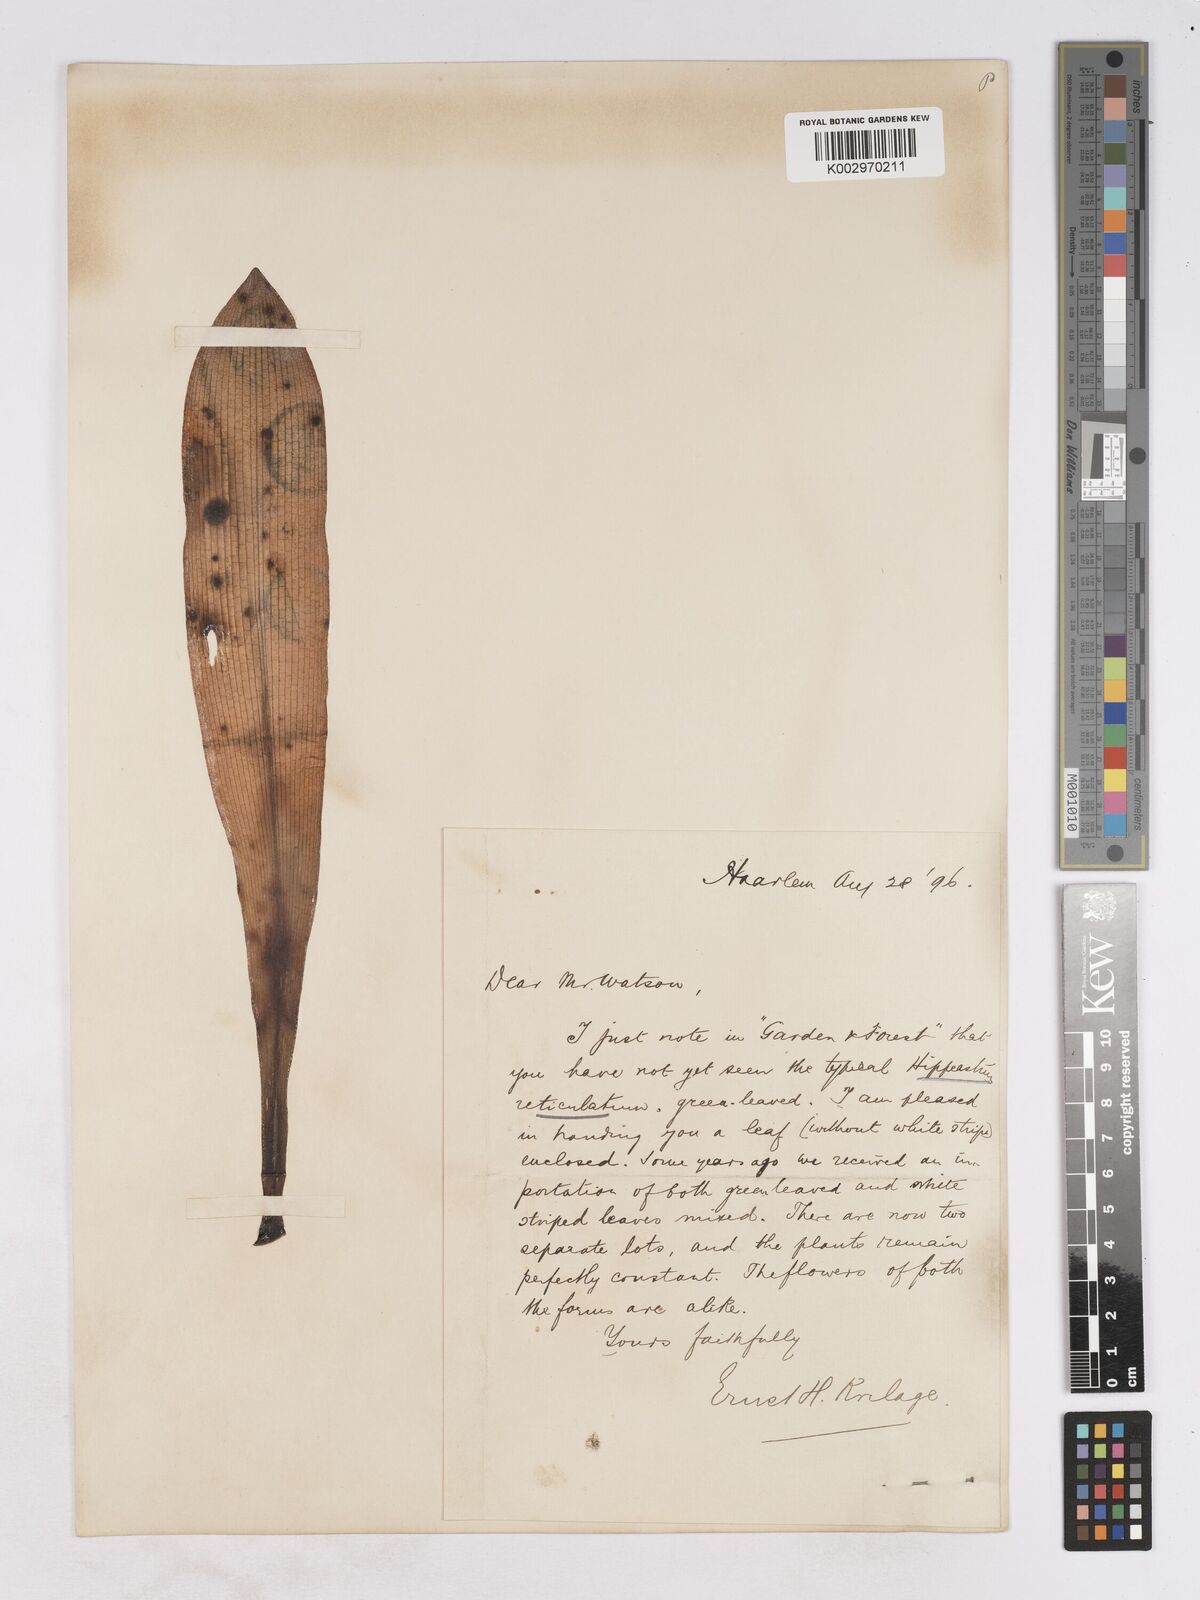 P
ROYAL BOTANIC GARDENS KEW
K002970211
Haarlem Aug 28 '96.
Dear Mr. Watson,
I just note in "Garden & Forest" that
you have not yet seen the typical Hippeastrum
reticulatum, green-leaved. I am pleased
in handing you a leaf (without white stripe)
enclosed. Some years ago we received an im-
portation of both green leaved and white
striped leaves mixed. There are now two
separate lots, and the plants remain
perfectly constant. The flowers of both
the forms are alike.
Yours faithfully
Ernst H. Krelage.
inches
centimeters
Density
Don Williams
M001010
Kew
copyright reserved
0 1 2 3 4 5 6 7 8 9 10
cm